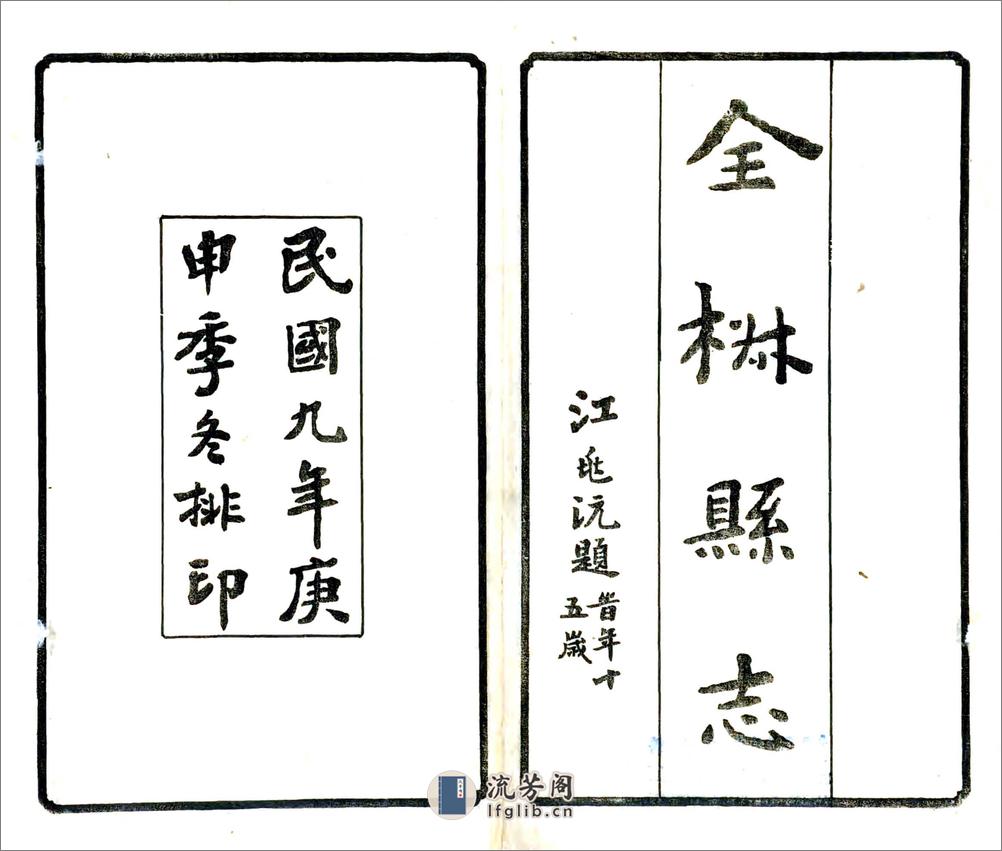 全椒縣志
江沅題
旹年十
五歲
民國九年庚
申季冬排印
流芳阁
lfglib.cn